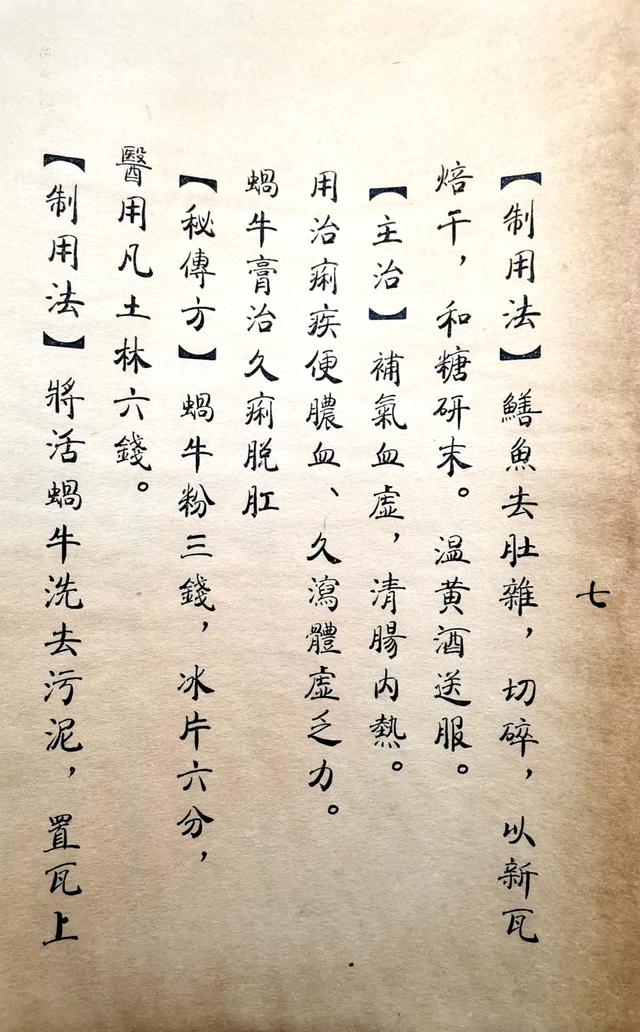 七
【制用法】鱔魚去肚雜，切碎，以新瓦
焙干，和糖研末。溫黃酒送服。
【主治】補氣血虛，清腸内熱。
用治痢疾便膿血、久瀉體虛乏力。
蝸牛膏治久痢脱肛
【秘傳方】蝸牛粉三錢，冰片六分，
醫用凡士林六錢。
【制用法】將活蝸牛洗去污泥，置瓦上